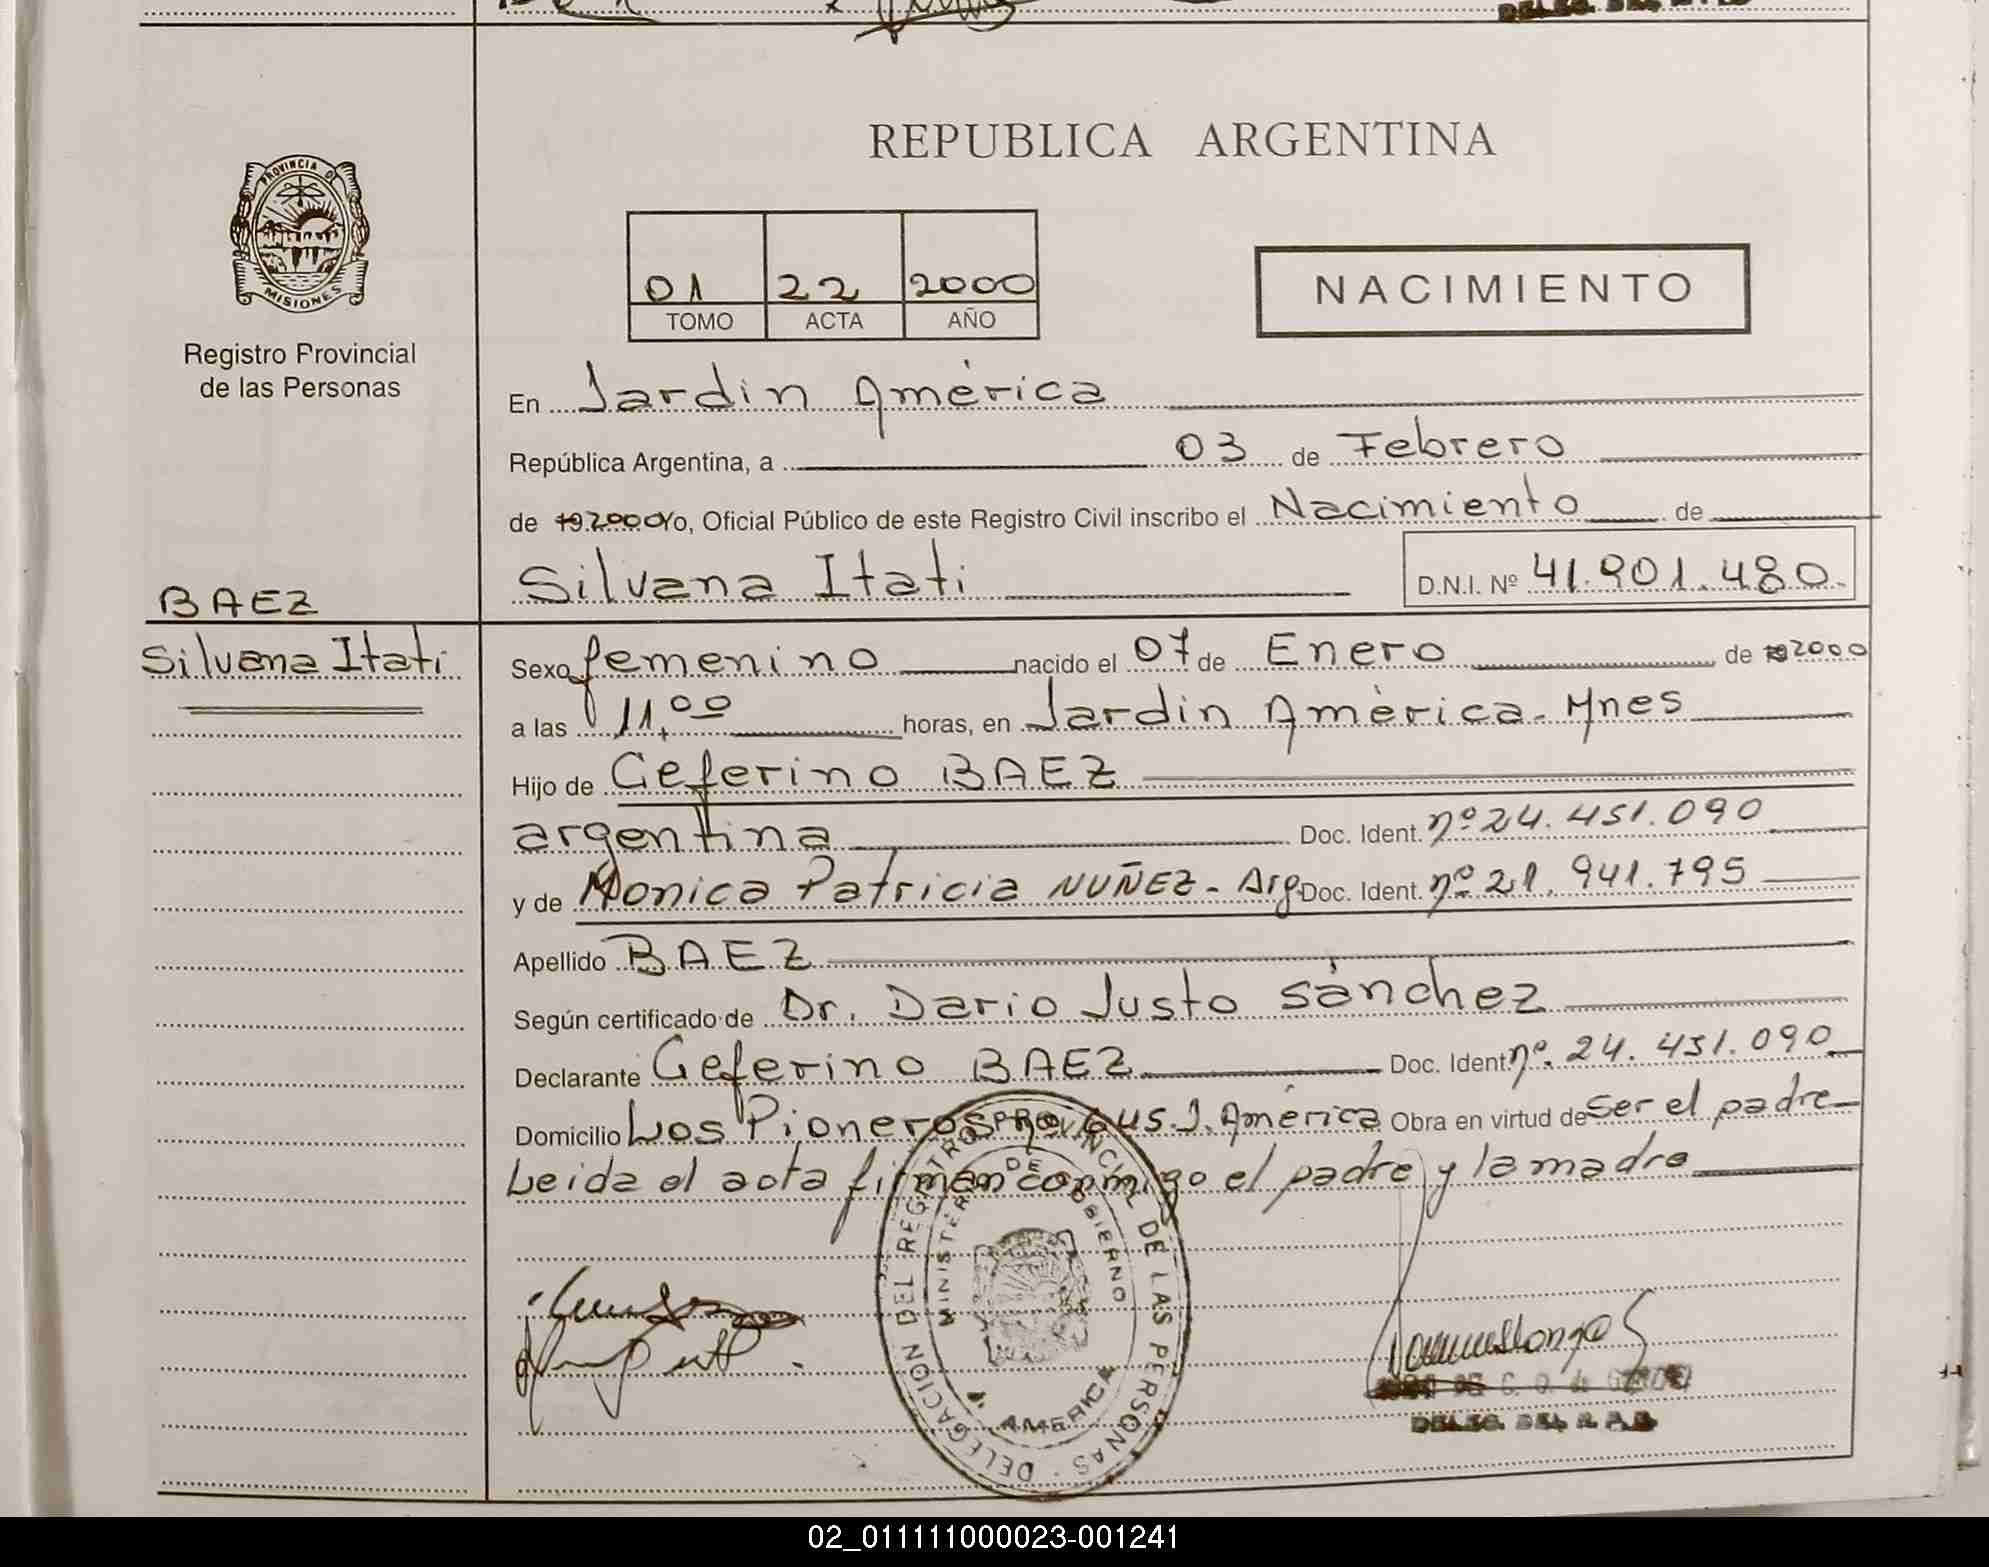 PROVINCIA DE
MISIONES
Registro Provincial
de las Personas
REPUBLICA ARGENTINA
01 22 2000
TOMO ACTA AÑO
NACIMIENTO
En Jardin América
República Argentina, a 03 de Febrero
de 19 2000 Yo, Oficial Público de este Registro Civil inscribo el Nacimiento de
Silvana Itati D.N.I. Nº 41.901.480
BAEZ
Silvana Itati
Sexo femenino nacido el 07 de Enero de 19 2000
a las 11,00 horas, en Jardin América. Mnes
Hijo de Ceferino BAEZ
argentina Doc. Ident. nº 24.451.090
y de Monica Patricia NUÑEZ - Arg Doc. Ident. nº 21.941.795
Apellido BAEZ
Según certificado de Dr. Dario Justo Sánchez
Declarante Ceferino BAEZ Doc. Ident. nº. 24.451.090
Domicilio Los Pioneros J. América Obra en virtud de Ser el padre
Leida el acta firman conmigo el padre y la madre
DELEGACION DEL REGISTRO PROVINCIAL DE LAS PERSONAS
MINISTERIO DE GOBIERNO
J. AMERICA
DELEG. DEL R.P.P
02_011111000023-001241